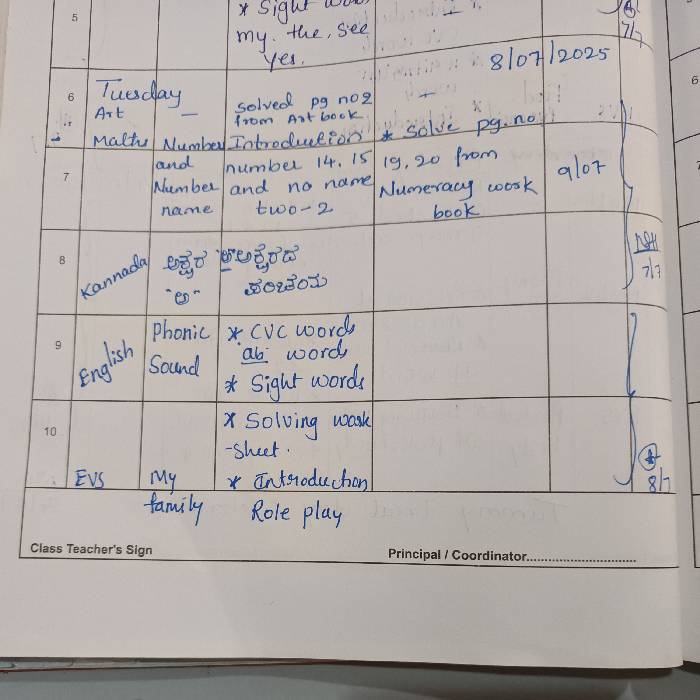 5
* Sight
my. the, see
yes.
7/7
8/07/2025
6
Tuesday
Art
–
solved pg no 2
from Art book
Maths
Number
and
Number
name
Introduction
number 14, 15
and no name
two-2
* solve pg. no
19, 20 from
Numeracy work
book
9/07
7
8
Kannada
ಅಕ್ಷರ
"ಅ"
ಪರಿಚಯ
7/7
9
English
Phonic
Sound
* CVC words
ab words
* Sight words
10
* Solving work
-sheet.
EVS
My
family
* Introduction
Role play
8/7
Class Teacher's Sign
Principal / Coordinator
6